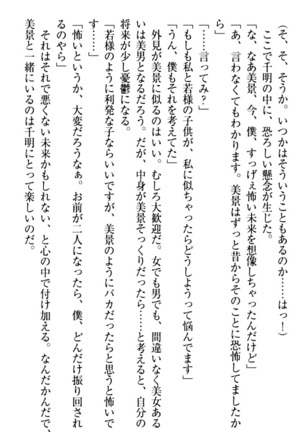 （そ、そ、そうか。いつかはそういうこともあるのか……！）
ここで千明の中に、恐ろしい懸念が生じた。
「な、なあ美景、今、僕、すっげぇ怖い未来を想像しちゃったんだけど」
「あ、言わなくてもわかります。美景はずっと昔からそのことに恐怖してましたか
ら」
「……言ってみ？」
「もしも私と若様の子供が、私に似ちゃったらどうしようって話ですね」
「うん、僕もそれを考えてた」
外見が美景に似るのはいい。むしろ大歓迎だ。女でも男でも、間違いなく美女ある
いは美男となるだろう。だが、中身が美景そっくりだったら……と考えると、自分の
将来が少し憂鬱になる。
「若様のように利発な子ならいいですが、美景のようにバカだったらと思うと怖いで
す……」
「怖いというか、大変だろうなぁ。お前が二人になったら、僕、どんだけ振り回され
るのやら」
それはそれで悪くない未来かもしれない、と心の中で付け加える。なんだかんだで、
美景と一緒にいるのは千明にとって楽しいのだ。